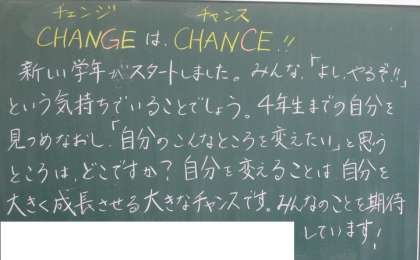 チェンジ　チャンス
CHANGEは、CHANCE!!
新しい学年がスタートしました。みんな、「よし、やるぞ!!」
という気持ちでいることでしょう。4年生までの自分を
見つめなおし、「自分のこんなところを変えたい」と思う
ところは、どこですか？自分を変えることは自分を
大きく成長させる大きなチャンスです。みんなのことを期待
しています!